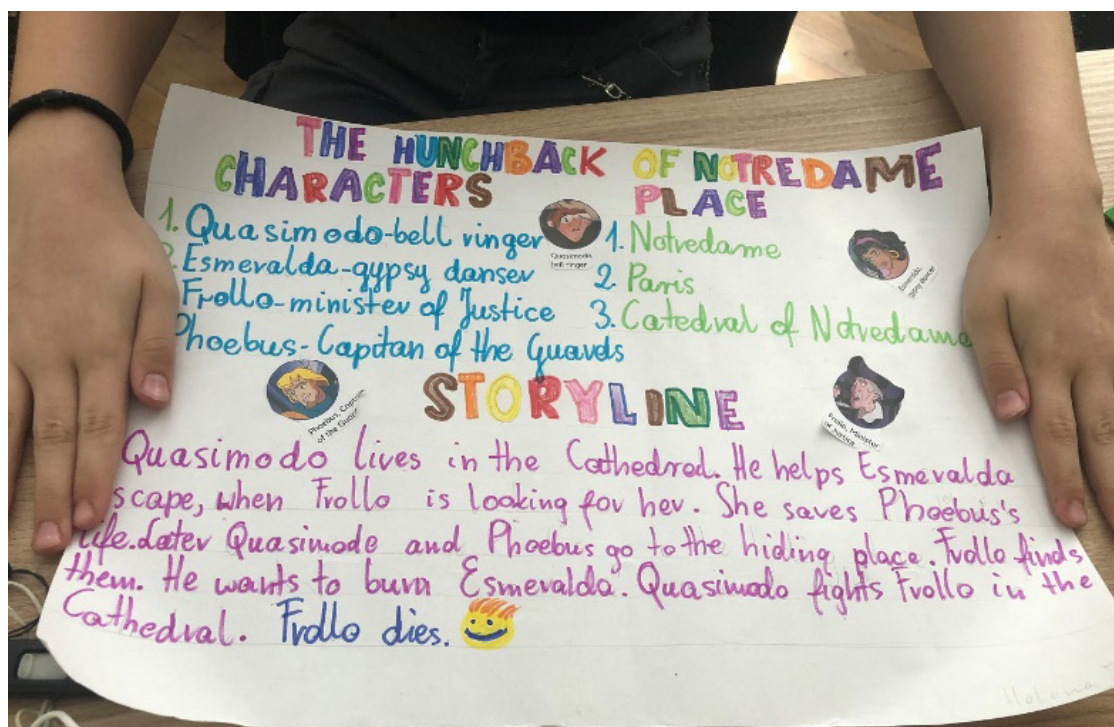 THE HUNCHBACK OF NOTREDAME
CHARACTERS
1. Quasimodo-bell ringer
Esmeralda-gypsy danser
Frollo-minister of Justice
Phoebus-Capitan of the Guards
Quasimodo,
bell ringer
PLACE
1. Notredame
2. Paris
3. Catedral of Notredame
Esmeralda,
gypsy dancer
Phoebus, Captain
of the Guard
Frollo, Minister
of Justice
STORYLINE
Quasimodo lives in the Cathedral. He helps Esmeralda
scape, when Frollo is looking for her. She saves Phoebus's
life. Later Quasimodo and Phoebus go to the hiding place. Frollo finds
them. He wants to burn Esmeralda. Quasimodo fights Frollo in the
Cathedral. Frollo dies.